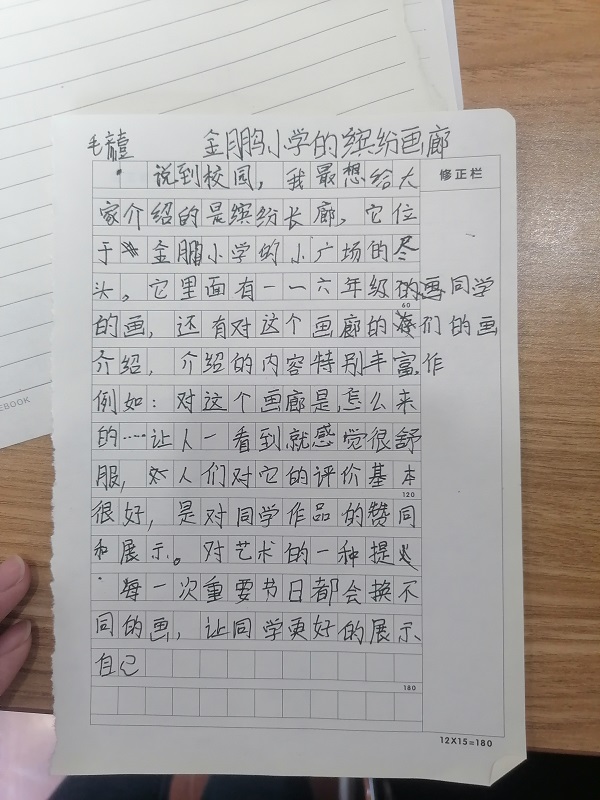 毛禧 金鹏小学的缤纷画廊
修正栏
说到校园，我最想给大
家介绍的是缤纷长廊，它位
于金鹏小学的小广场的尽
头。它里面有一一六年级的画同学
60
的画，还有对这个画廊的们的画
介绍，介绍的内容特别丰富，作
例如：对这个画廊是怎么来
的……让人一看到就感觉很舒
服，人们对它的评价基本
120
很好，是对同学作品的赞同
和展示。对艺术的一种提
每一次重要节日都会换不
同的画，让同学更好的展示
自己
180
12X15=180
EBOOK